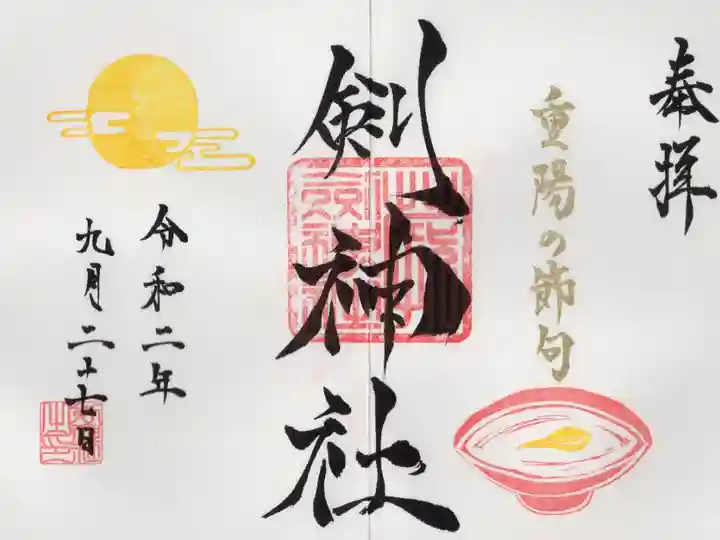 奉拝
重陽の節句
剣神社
令和二年
九月二十七日